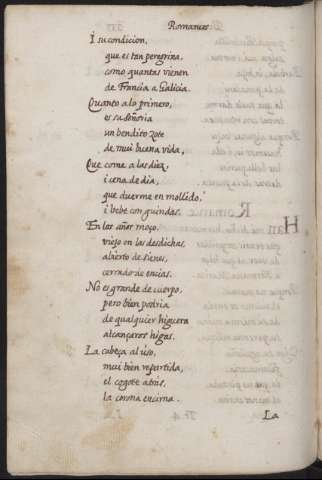 Romances.
I su condicion,
que es tan peregrina,
como quantas vienen
de Francia a Galicia.
Quanto a lo primero,
es su señoria
un bendito zote
de mui buena vida,
Que come a las diez,
i cena de dia,
que duerme en mollido,
i bebe con guindas.
En los años moço,
viejo en las desdichas,
abierto de sienes,
cerrado de encias.
No es grande de cuerpo,
pero bien podria
de qualquier higuera
alcançaros higas.
La cabeça al uso,
mui bien repartida,
el cogote atras,
la corona encima.
La